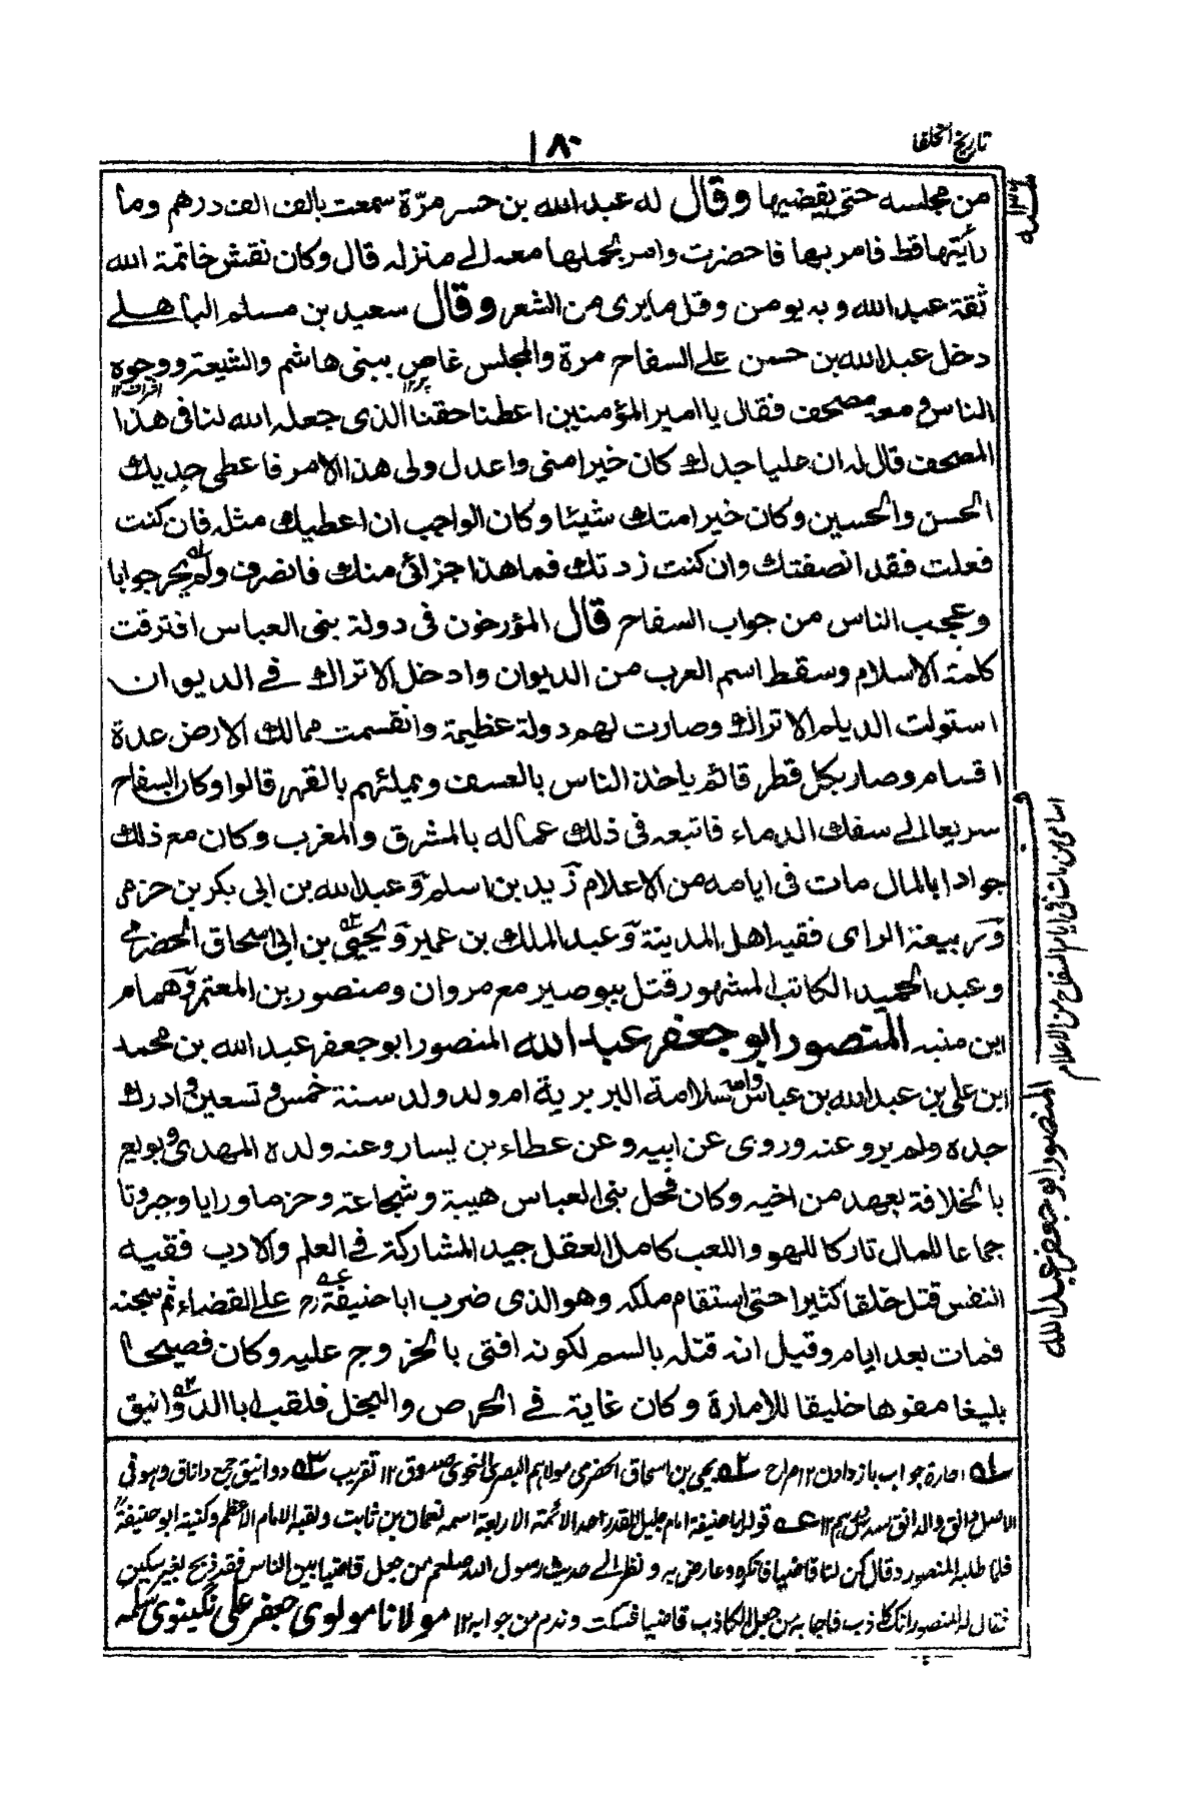 تاريخ الخلفا
١٨٠
من مجلسه حتى يقضيها وقال له عبد الله بن حسن مرّة سمعت بالف الف درهم وما
رأيتها قط فامر بها فاحضرت وامر بحملها معه الى منزله قال وكان نقش خاتمه الله
ثقة عبد الله وبه يومن وقل ما يرى من الشعر وقال سعيد بن مسلم الباهلے
دخل عبد الله بن حسن علے السفاح مرة والمجلس غاص ببنى هاشم والشيعة ووجوه
الناس ومعه مصحف فقال يا امير المؤمنين اعطنا حقنا الذى جعله الله لنا فى هذا
المصحف قال له ان عليا جدك كان خيرا منى واعدل ولى هذا الامر فاعطى جديك
الحسن والحسين وكان خيرا منك شيئا وكان الواجب ان اعطيك مثله فان كنت
فعلت فقد انصفتك وان كنت زدتك فما هذا جزائى منك فانصرف ولم يحر جوابا
وعجب الناس من جواب السفاح قال المؤرخون فى دولة بنى العباس افترقت
كلمة الاسلام وسقط اسم العرب من الديوان وادخل الاتراك فے الديوان
استولت الديلم الاتراك وصارت لهم دولة عظيمة وانقسمت ممالك الارض عدة
اقسام وصار بكل قطر قائم ياخذ الناس بالعسف ويملئهم بالقهر قالوا وكان السفاح
سريعا الى سفك الدماء فاتبعه فى ذلك عماله بالمشرق والمغرب وكان مع ذلك
جوادا بالمال مات فى ايامه من الاعلام زيد بن اسلم وعبد الله بن ابى بكر بن حزم
وربيعة الراى فقيه اهل المدينة وعبد الملك بن عمير ويحيى بن ابى اسحاق الحضرمے
وعبد الحميد الكاتب المشهور قتل ببوصير مع مروان ومنصور بن المعتمر وهمام
ابن منبه المنصور ابو جعفر عبد الله المنصور ابو جعفر عبد الله بن محمد
ابن على بن عبد الله بن عباس وامه سلامة البربرية ام ولد ولد سنة خمس وتسعين وادرك
جده ولم يرو عنه وروى عن ابيه وعن عطاء بن يسار وعنه ولده المهدى وبويع
بالخلافة بعهد من اخيه وكان فحل بنى العباس هيبة وشجاعة وحزما ورايا وجبروتا
جماعا للمال تاركا للهو واللعب كامل العقل جيد المشاركة فے العلم والادب فقيه
النفس قتل خلقا كثيرا حتى استقام ملكه وهو الذى ضرب ابا حنيفة رح علے القضاء ثم سجنه
فمات بعد ايام وقيل انه قتله بالسم لكونه افتى بالخروج عليه وكان فصيحا
بليغا مفوها خليقا للامارة وكان غاية فے الحرص والبخل فلقب ابا الدوانيق
ـله احارة جواب باز دادن ١٢ صراح ـ٢ه يحيى بن اسحاق الحضرمى مولاهم البصرى النحوى صدوق ١٢ تقريب ـ٣ه دوانيق جمع داناق وهو فى
الاصل دانق والدانق سدس درهم ١٢ ـ٤ه قوله ابا حنيفة امام جليل القدر احد الائمة الاربعة اسمه نعمان بن ثابت ولقبه الامام الاعظم وكنيته ابو حنيفة
فلما طلبه المنصور وقال كن لنا قاضيا فانكره وعارض به ونظر الے حديث رسول الله صلعم من جعل قاضيا بين الناس فقد ذبح بغير سكين
فقال له المنصور انك كاذب فاجابه من جعل الكاذب قاضيا فسكت وندم من جوابه ١٢ مولانا مولوى جعفر على نگينوى سلمه
اسامى من مات فى ايام السفاح من الاعلام
المنصور ابو جعفر عبد الله